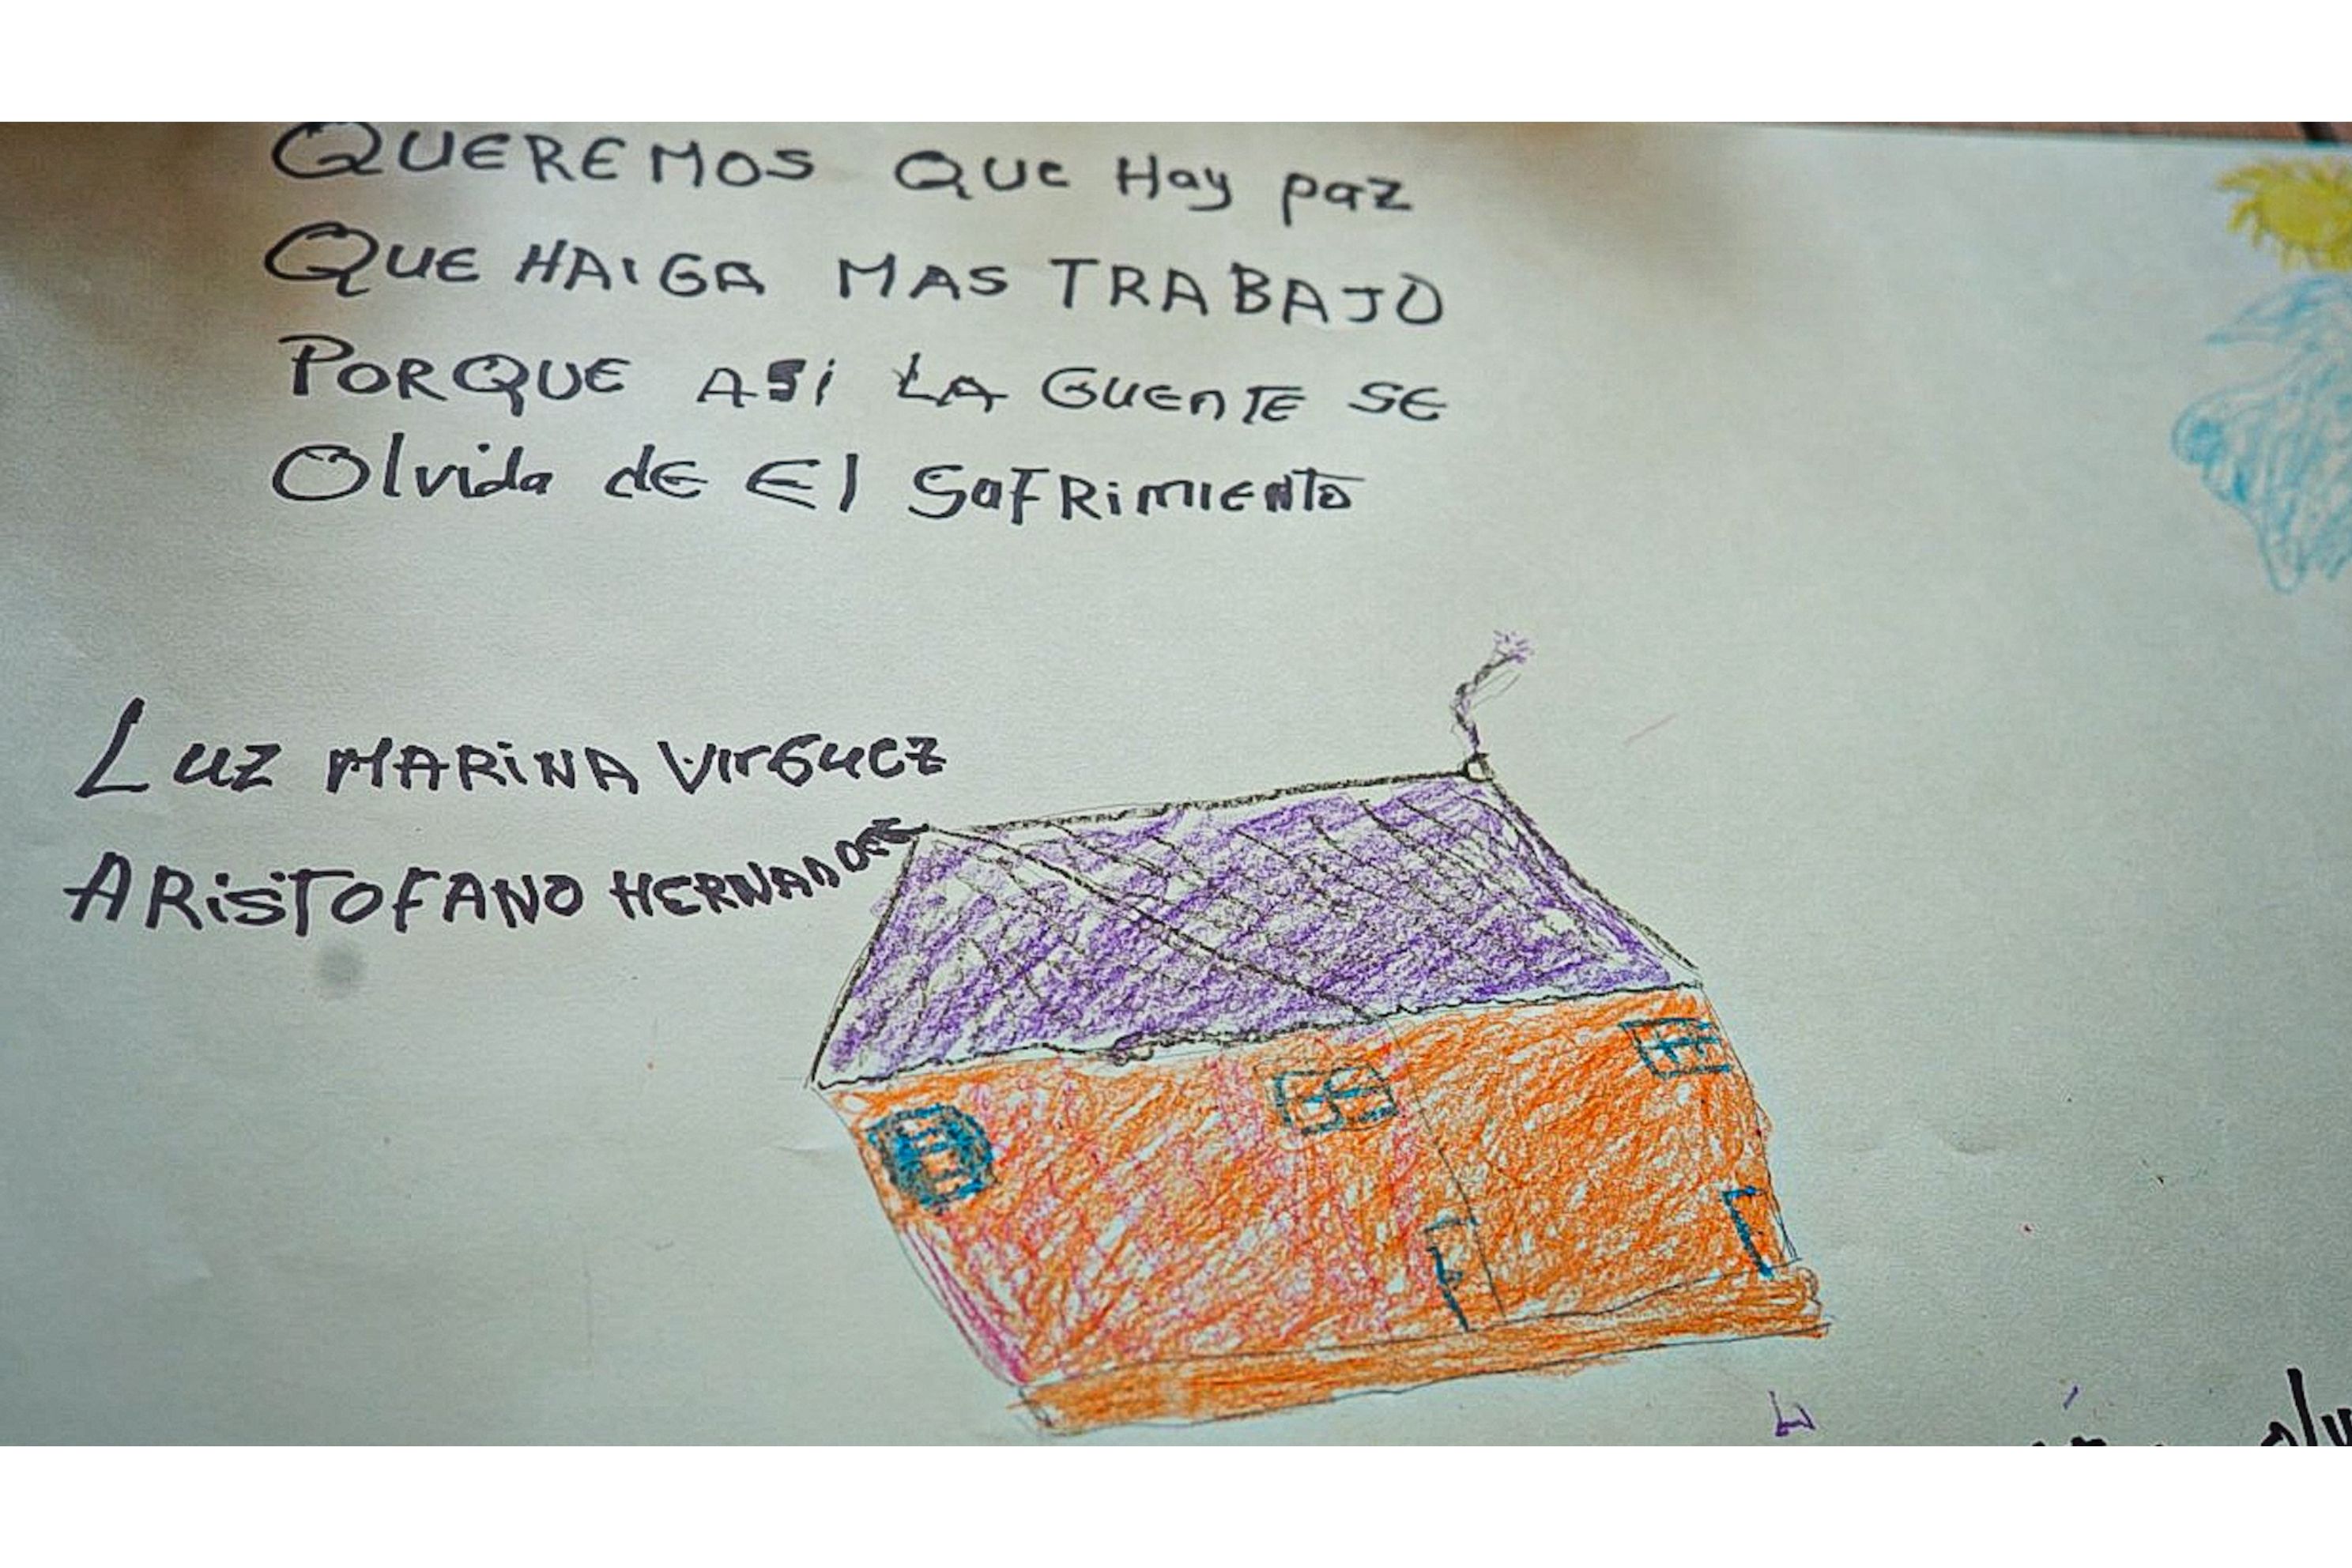 QUEREMOS QUE Hay paz
QUE HAIGA MAS TRABAJO
PORQUE ASI LA GUENTE SE
Olvida dE El SOFRIMIENTO
LUZ MARINA VIRGUEZ
ARISTOFANO HERNANDEZ